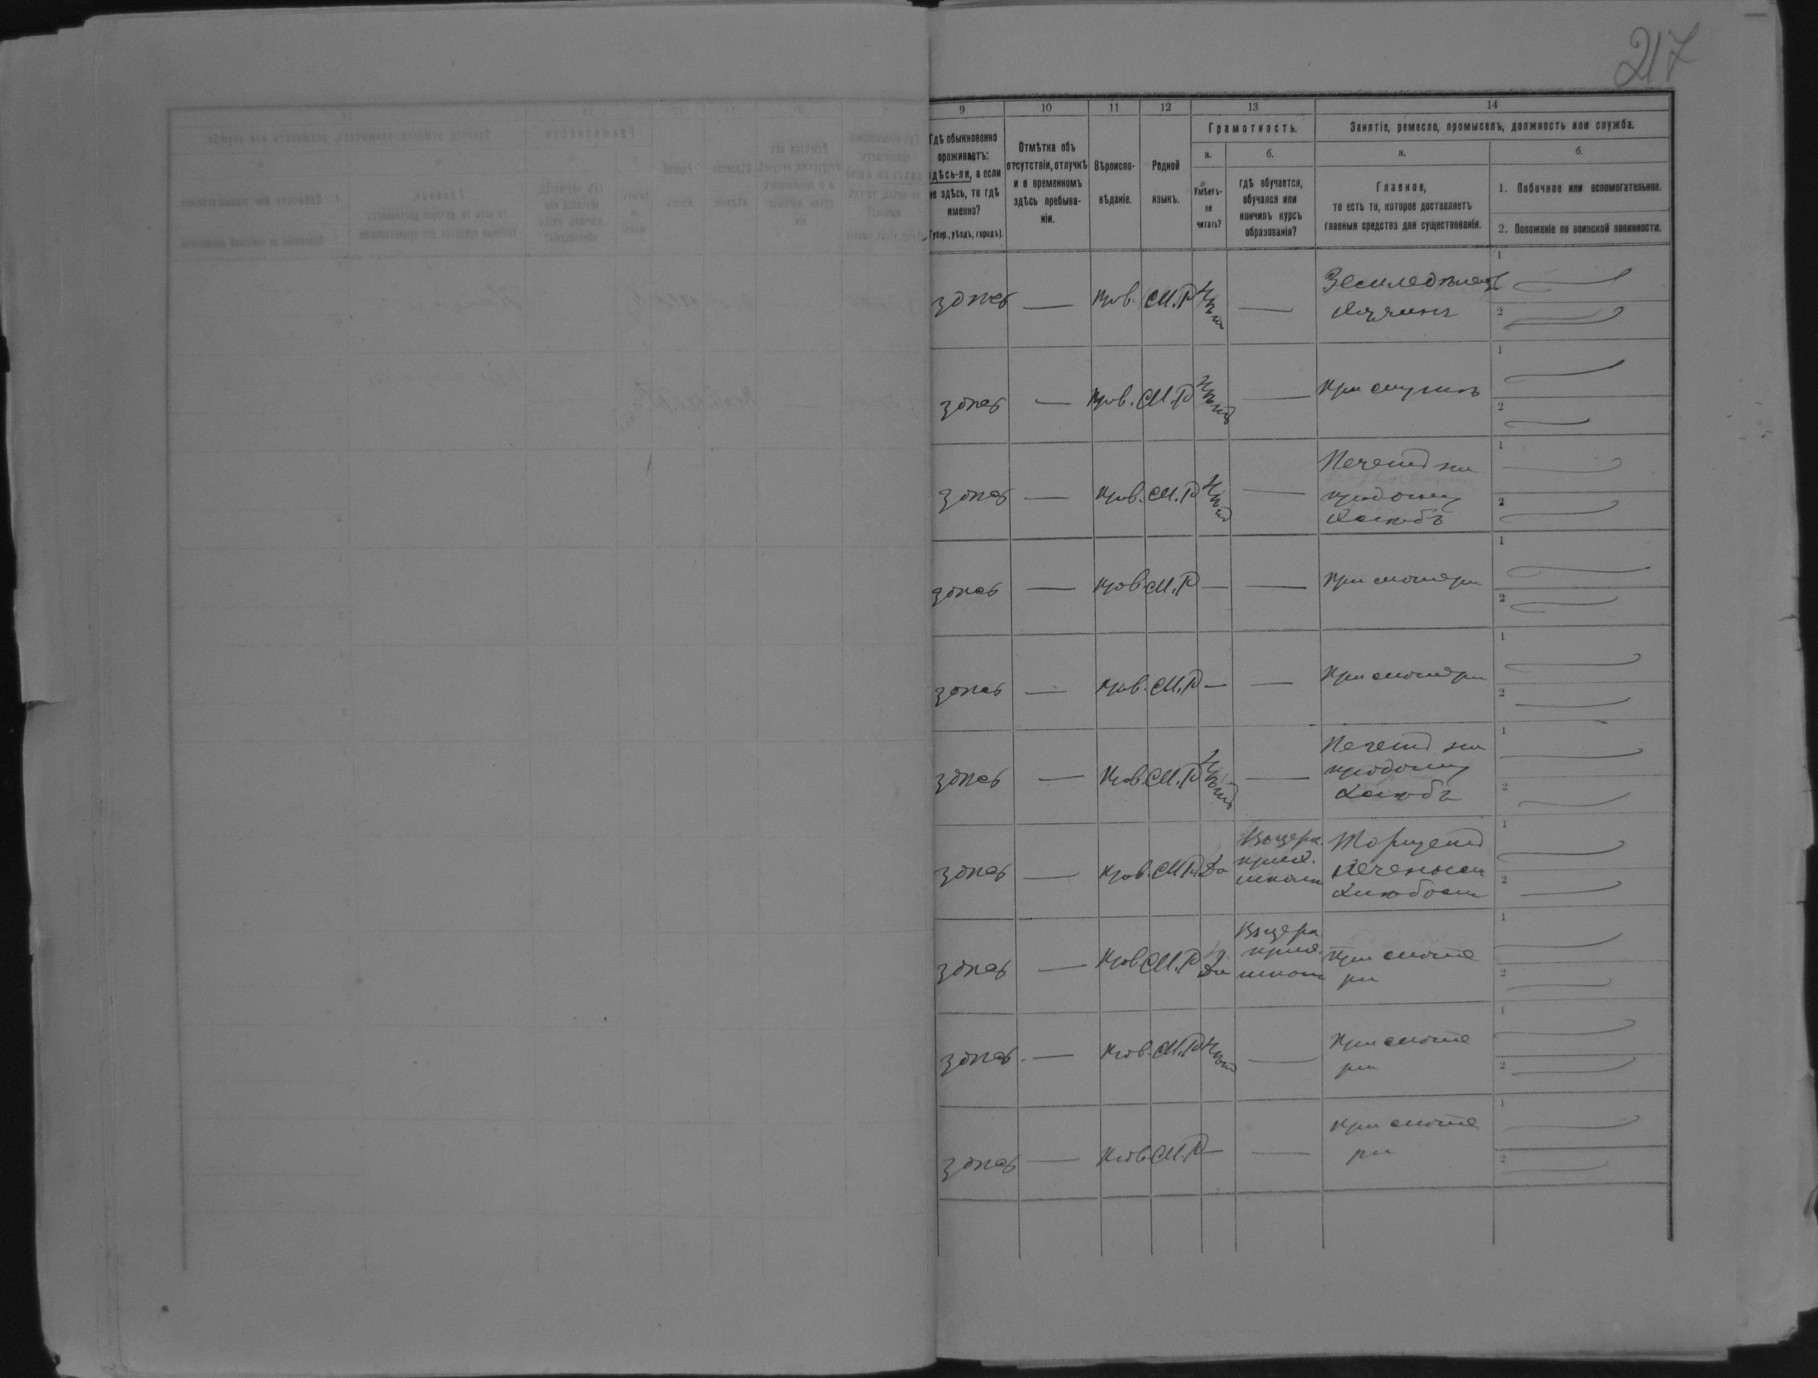 217
9 10 11 12 13 14
Гдѣ обыкновенно
проживаетъ:
здѣсь-ли, а если
не здѣсь, то гдѣ
именно?
(Губер., уѣздъ, городъ).
Отмѣтка объ
отсутствіи, отлучкѣ
и о временномъ
здѣсь пребыва-
ніи.
Вѣроиспо-
вѣданіе.
Родной
языкъ.
Грамотность.
а.
Умѣетъ-
ли
читать?
б.
гдѣ обучается,
обучался или
кончилъ курсъ
образованія?
Занятіе, ремесло, промыселъ, должность или служба.
а.
Главное,
то есть то, которое доставляетъ
главныя средства для существованія.
б.
1. Побочное или вспомогательное.
2. Положеніе по воинской повинности.
здѣсь — прав. М.Р. —
1
2
здѣсь — прав. М.Р. нѣтъ — При мужѣ
1
2
здѣсь — прав. М.Р. нѣтъ — Печетъ на
продажу
хлѣбъ
1
2
здѣсь — прав. М.Р. — — При матери
1
2
здѣсь — прав. М.Р. — — При матери
1
2
здѣсь — прав. М.Р. нѣтъ — Печетъ на
продажу
хлѣбъ
1
2
здѣсь — прав. М.Р. Да В церк.
прих.
школѣ
Торгуетъ
печенымъ
хлѣбомъ
1
2
здѣсь — прав. М.Р. Да В церк.
прих.
школѣ
При мате
ри
1
2
здѣсь — прав. М.Р. нѣтъ — При мате
ри
1
2
здѣсь — прав. М.Р. — — При мате
ри
1
2